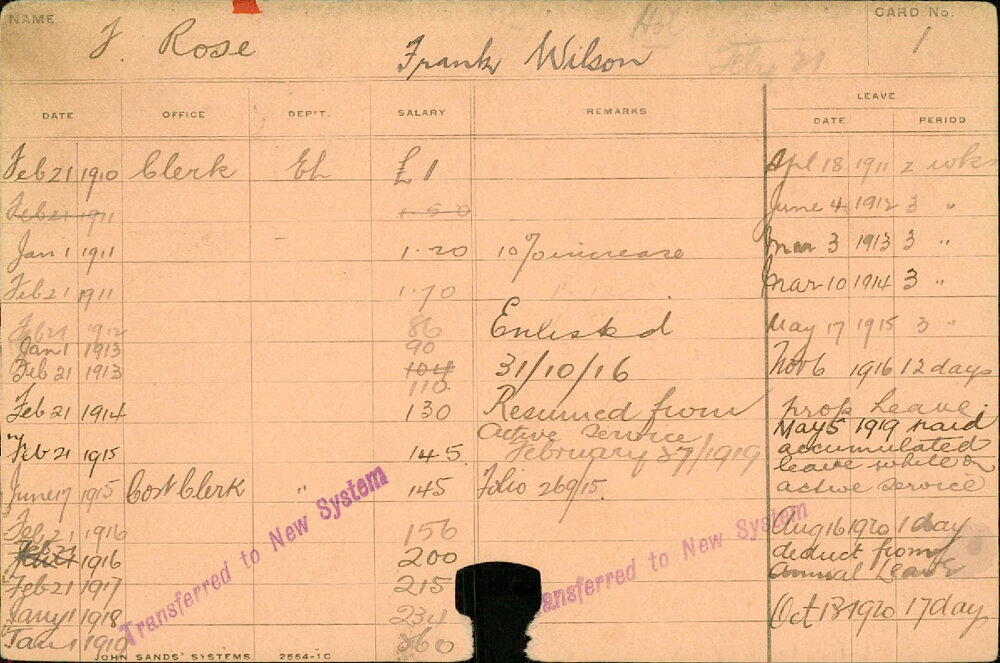 NAME
CARD No.
F Rose
Frank Wilson
Hol
Feby 21
1
DATE OFFICE DEP'T. SALARY REMARKS LEAVE
DATE PERIOD
Feb 21 1910 Clerk EL £1
Apl 18 1911 2 wks
Feb 21 1911
June 4 1912 3 "
Jan 1 1911 1.20 10% increase
Mar 3 1913 3 "
Feb 21 1911 1.70
Mar 10 1914 3 "
Feb 21 1912 86 Enlisted
May 17 1915 3 "
Jan 1 1913 90
Feb 21 1913 104 31/10/16
Nov 6 1916 12 days
110
prop Leave.
Feb 21 1914 130 Resumed from
May 5 1919 paid
Active Service
accumulated
Feb 21 1915 145 February 1919
leave while on
June 17 1915 Cost Clerk " 145 Folio 269/15.
active service
Feb 21 1916 156
Aug 16 1920 1 day
1916 200
deduct from
Feb 21 1917 215
annual Leave
Jany 1 1918 234
Oct 13 1920 17 day
Jan 1 1919 260
Transferred to New System
Transferred to New System
JOHN SANDS' SYSTEMS 2554-1C